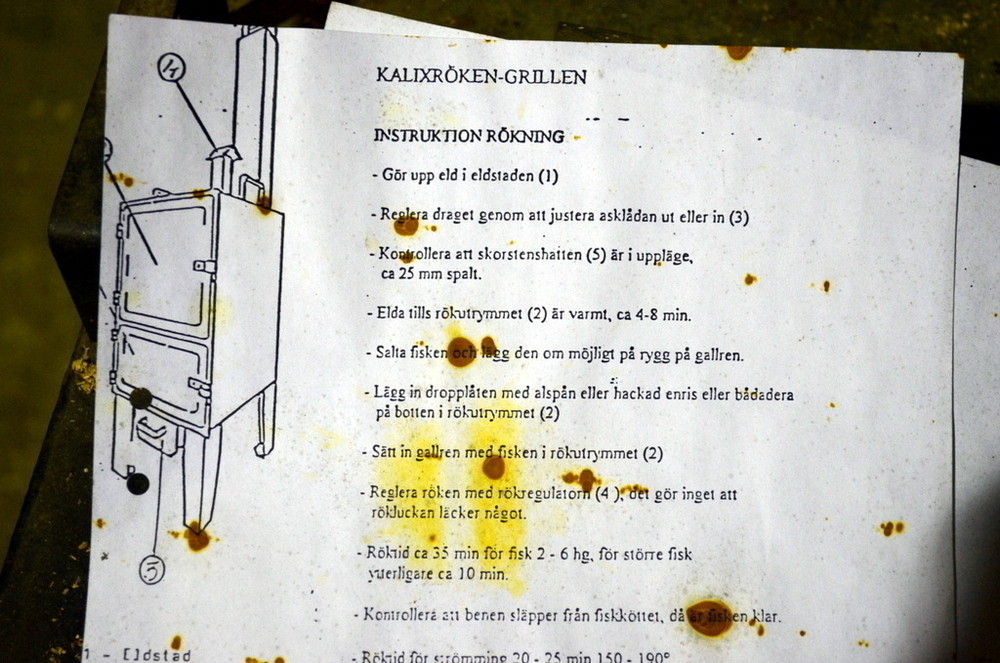 KALIXRÖKEN-GRILLEN
INSTRUKTION RÖKNING
- Gör upp eld i eldstaden (1)
- Reglera draget genom att justera asklådan ut eller in (3)
- Kontrollera att skorstenshatten (5) är i uppläge,
ca 25 mm spalt.
- Elda tills rökutrymmet (2) är varmt, ca 4-8 min.
- Salta fisken och lägg den om möjligt på rygg på gallren.
- Lägg in dropplåten med alspån eller hackad enris eller bådadera
på botten i rökutrymmet (2)
- Sätt in gallren med fisken i rökutrymmet (2)
- Reglera röken med rökregulatorn (4 ), det gör inget att
rökluckan läcker något.
- Röktid ca 35 min för fisk 2 - 6 hg, för större fisk
ytterligare ca 10 min.
- Kontrollera att benen släpper från fiskköttet, då är fisken klar.
- Röktid för strömming 20 - 25 min 150 - 190°
4
3
1 - Eldstad